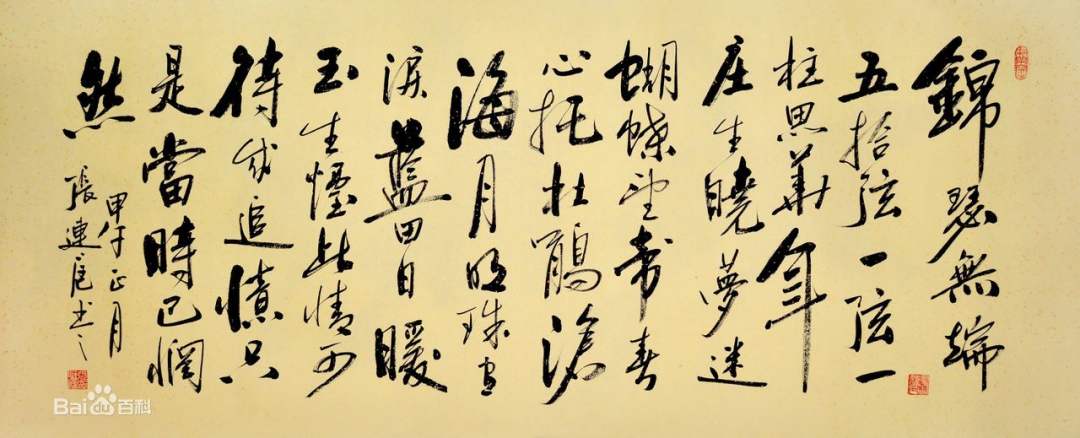 錦瑟無端
五拾弦一弦一
柱思華年
庄生曉夢迷
蝴蝶望帝春
心托杜鵑滄
海月明珠有
淚藍田日暖
玉生煙此情可
待成追憶只
是當時已惘
然
甲午正月
張連书之
Baidu百科